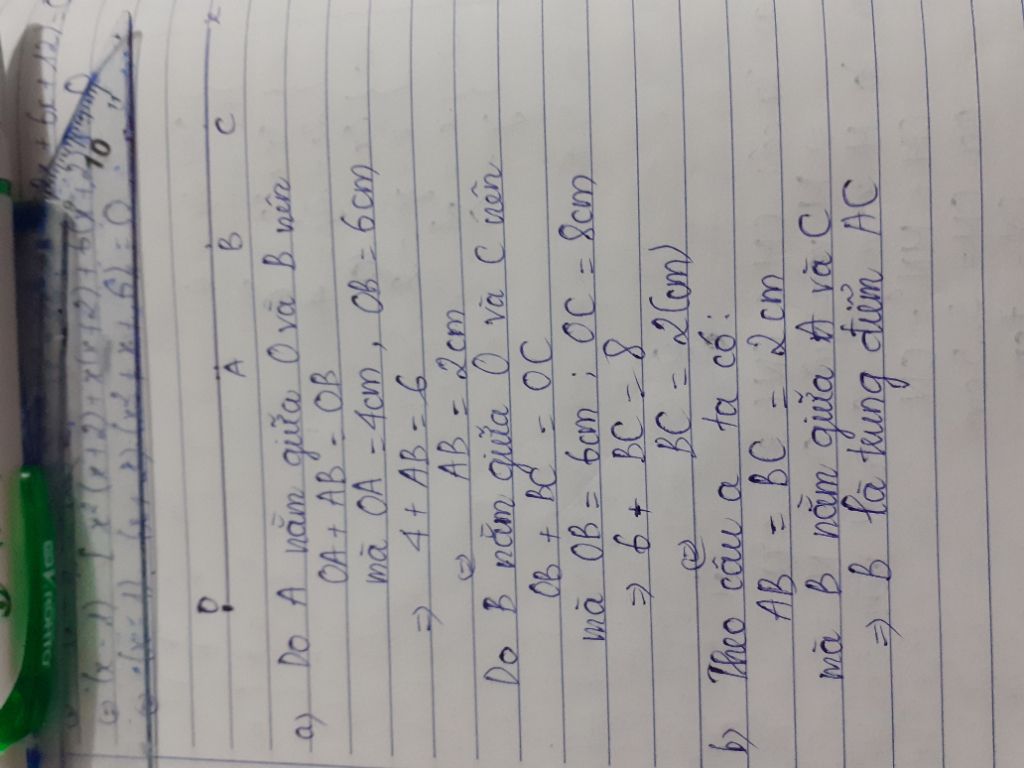 (x - 1) [x² (x+2) + x(x+2) + 6(x+2)]
(x + 2) (x² + x + 6) = 0
10
O A B C x
a) Do A nằm giữa O và B nên
OA + AB = OB
mà OA = 4cm , OB = 6cm
=> 4 + AB = 6
AB = 2cm
Do B nằm giữa O và C nên
OB + BC = OC
mà OB = 6cm ; OC = 8cm
=> 6 + BC = 8
BC = 2(cm)
b) Theo câu a ta có :
AB = BC = 2cm
mà B nằm giữa A và C
=> B là trung điểm AC